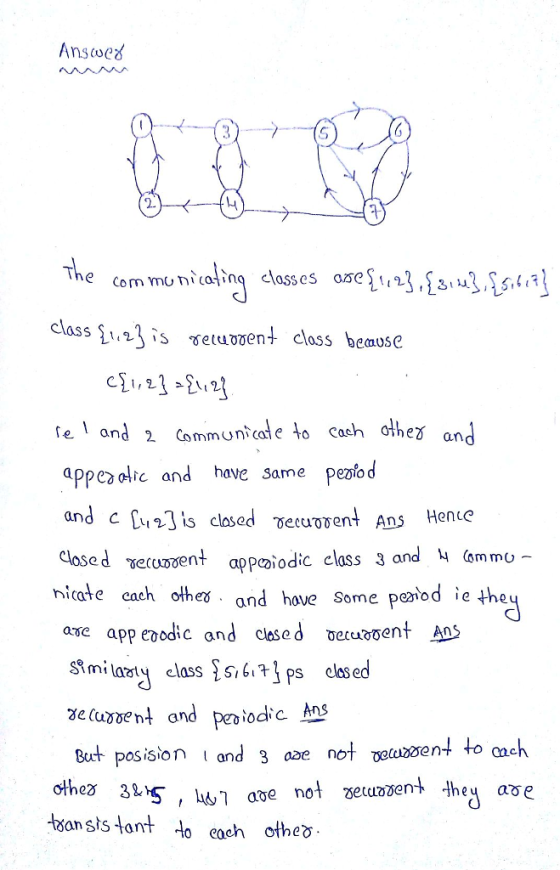 Answer
1 3 5 6
2 4 7
The communicating classes are {1,2}, {3,4}, {5,6,7}
class {1,2} is recurrent class because
C{1,2} = {1,2}
ie 1 and 2 communicate to each other and
apperatic and have same period
and C {1,2] is closed recurrent Ans Hence
closed recurrent apperiodic class 3 and 4 commu-
nicate each other. and have some period ie they
are apperodic and closed recurrent Ans
similarly class {5,6,7} ps closed
recurrent and periodic Ans
But posision 1 and 3 are not recurrent to each
other 3&5, 4&7 are not recurrent they are
transistant to each other.